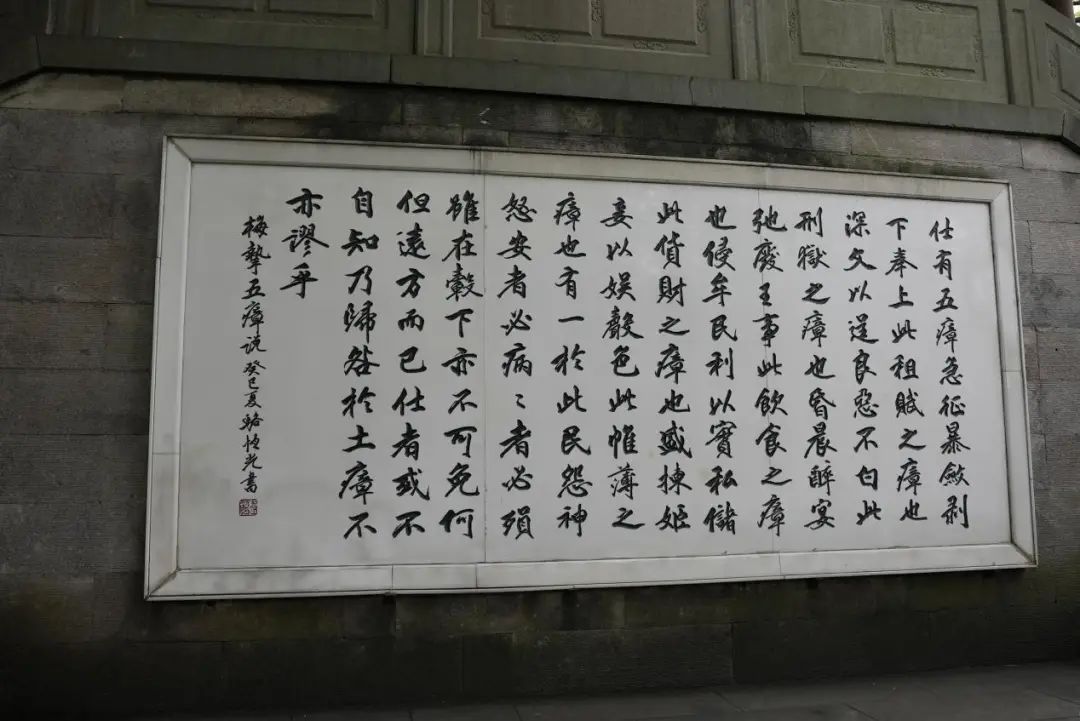 仕有五瘴急征暴斂剥
下奉上此租賦之瘴也
深文以逞良惡不白此
刑獄之瘴也昏晨醉宴
弛廢王事此飲食之瘴
也侵牟民利以實私儲
此貨財之瘴也盛揀姬
妾以娱聲色此帷薄之
瘴也有一於此民怨神
怒安者必病〻者必殞
雖在轂下亦不可免何
但遠方而已仕者或不
自知乃歸咎於土瘴不
亦謬乎
梅摯五瘴说癸巳夏駱恒光書